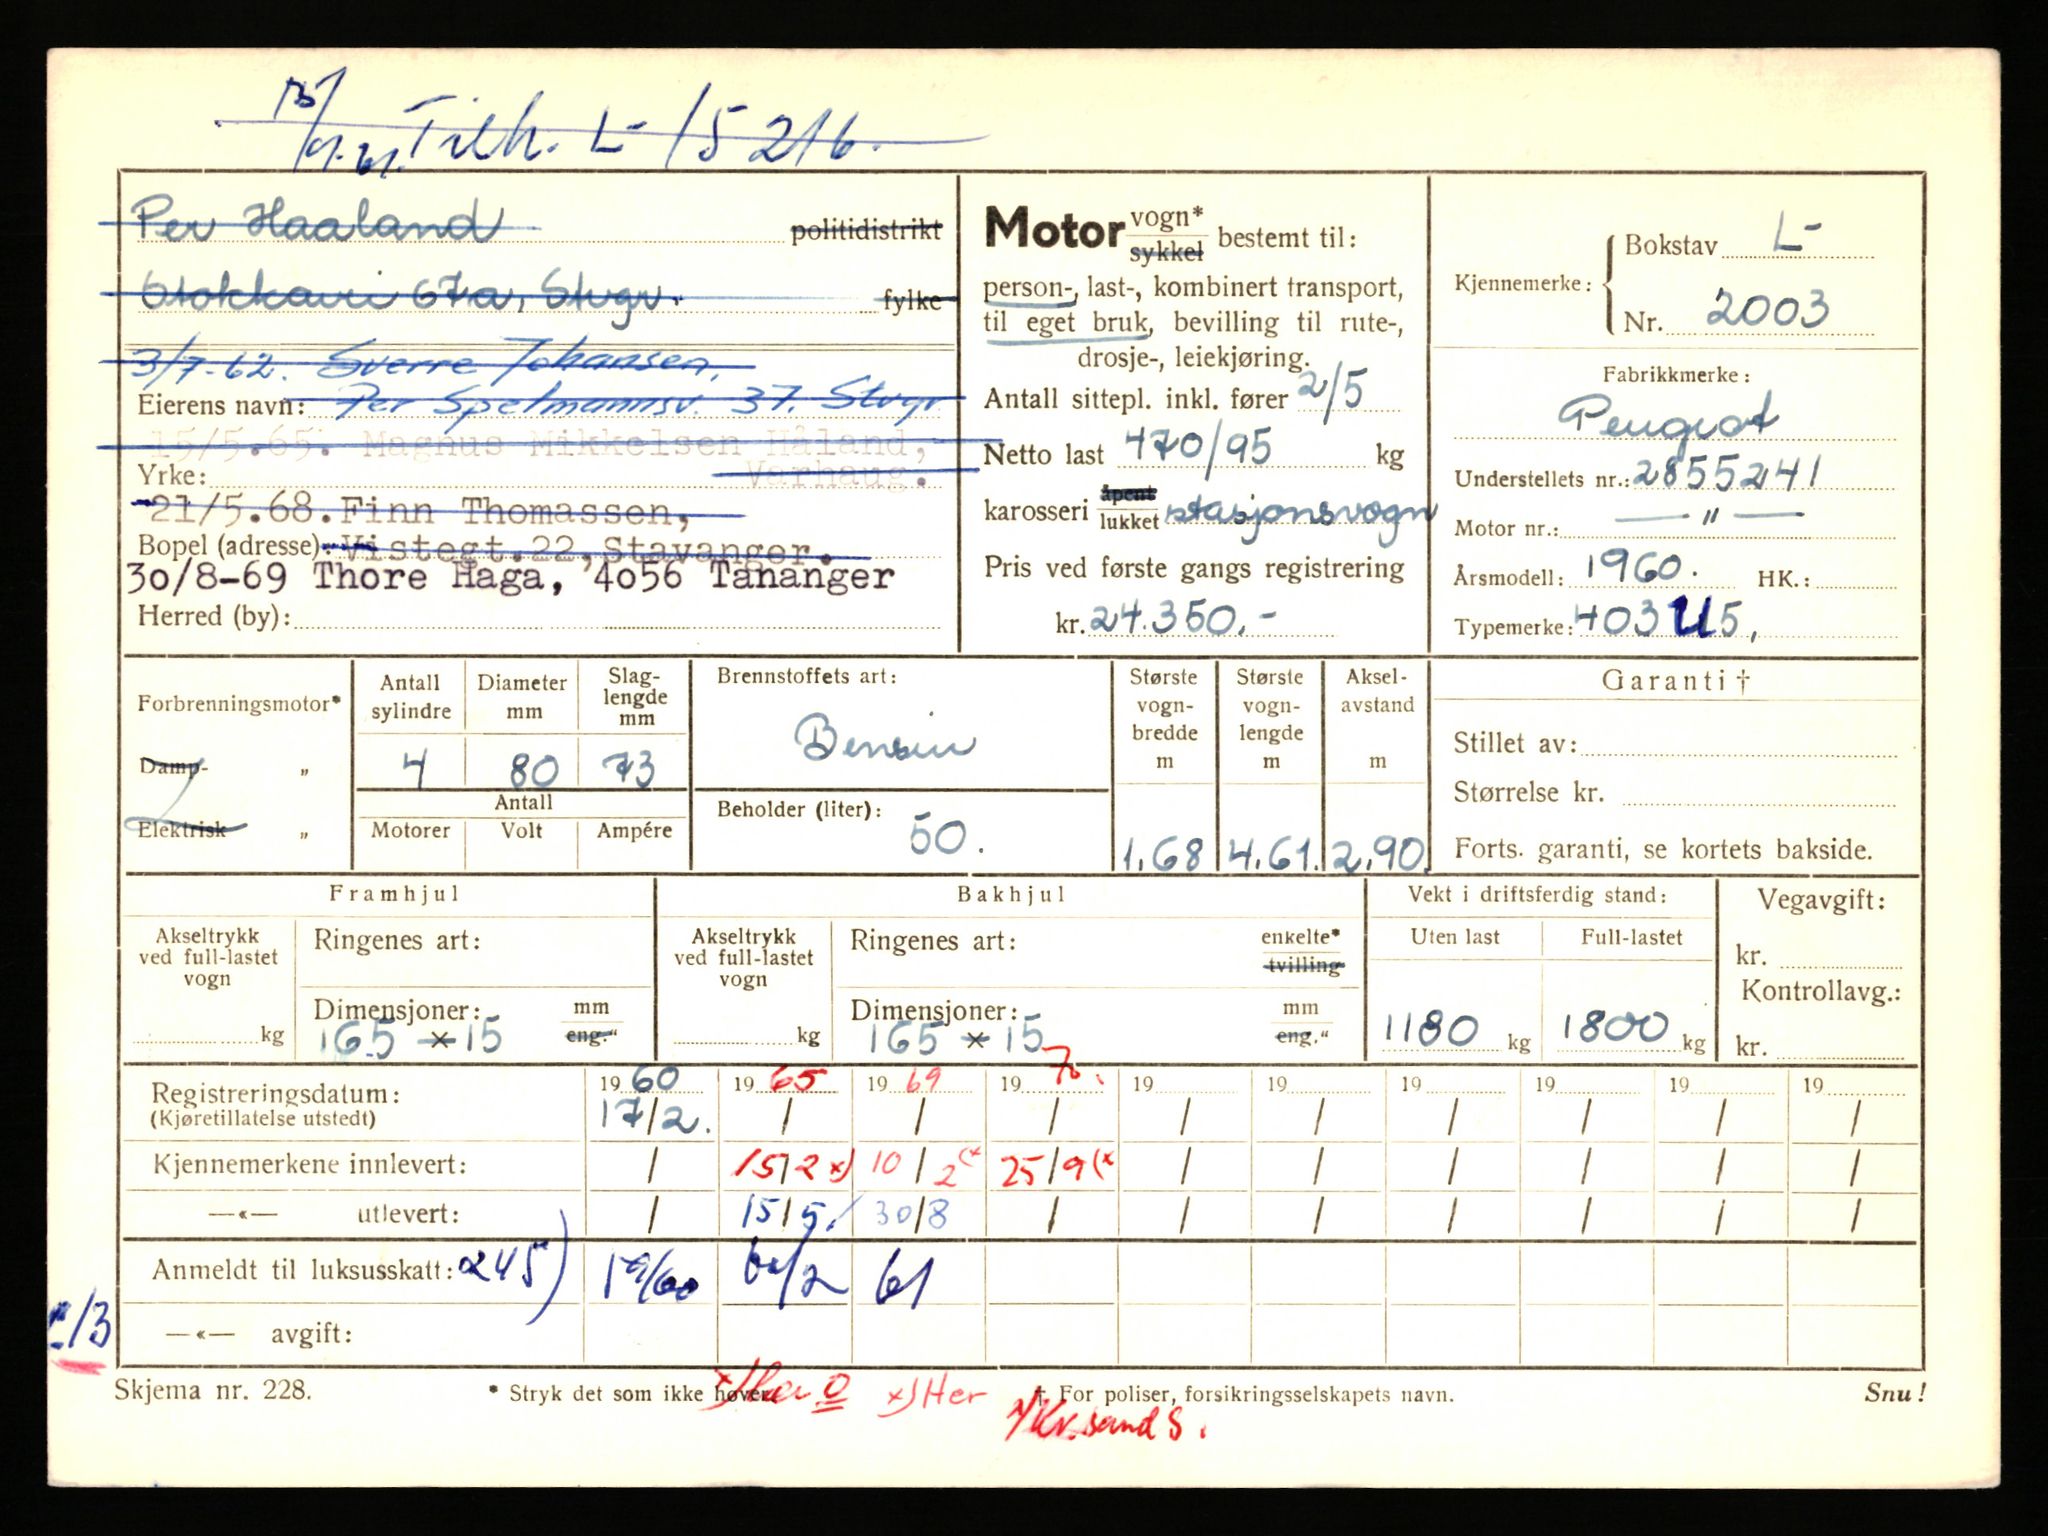 Tilh. L-15216.
Per Haaland politidistrikt
Stokkavei 67a, Stvgr. fylke
3/7-62. Sverre Johansen,
Eierens navn: Per Spelmannsv. 37. Stvgr
15/5.65. Magnus Mikkelsen Håland,
Yrke: Varhaug.
21/5.68. Finn Thomassen,
Bopel (adresse): Vistegt.22, Stavanger.
30/8-69 Thore Haga, 4056 Tananger
Herred (by):
Motor vogn* sykkel bestemt til:
person-, last-, kombinert transport,
til eget bruk, bevilling til rute-,
drosje-, leiekjøring.
Antall sittepl. inkl. fører 2/5
Netto last 470/95 kg
karosseri åpent lukket stasjonsvogn
Pris ved første gangs registrering
kr. 24.350,-
Kjennemerke: Bokstav L-
Nr. 2003
Fabrikkmerke:
Peugeot
Understellets nr.: 2855241
Motor nr.: — " —
Årsmodell: 1960. HK.:
Typemerke: 403 U5.
Forbrenningsmotor*
Damp- "
Elektrisk "
Antall sylindre 4
Diameter mm 80
Slaglengde mm 73
Antall
Motorer Volt Ampére
Brennstoffets art:
Bensin
Beholder (liter):
50.
Største vognbredde m 1.68
Største vognlengde m 4.61.
Akselavstand m 2.90.
Garanti †
Stillet av:
Størrelse kr.
Forts. garanti, se kortets bakside.
Framhjul
Akseltrykk ved full-lastet vogn kg
Ringenes art:
Dimensjoner: mm eng."
165 x 15
Bakhjul
Akseltrykk ved full-lastet vogn kg
Ringenes art: enkelte* tvilling
Dimensjoner: mm eng."
165 x 15
Vekt i driftsferdig stand:
Uten last Full-lastet
1180 kg 1800 kg
Vegavgift:
kr.
Kontrollavg.:
kr.
Registreringsdatum: 1960 1965 1969 1970. 19 19 19 19 19 19
(Kjøretillatelse utstedt) 17/2. / / / / / / / / /
Kjennemerkene innlevert: / 15/2 x) 10/2 (x 25/9 (x / / / / / /
—«— utlevert: / 15/5. 30/8 / / / / / / /
Anmeldt til luksusskatt: 245) 19/60 60/2 61
—«— avgift:
/3
Skjema nr. 228.
* Stryk det som ikke høver.
x) Her
† For poliser, forsikringsselskapets navn.
Snu!
x) Kr.sand S.